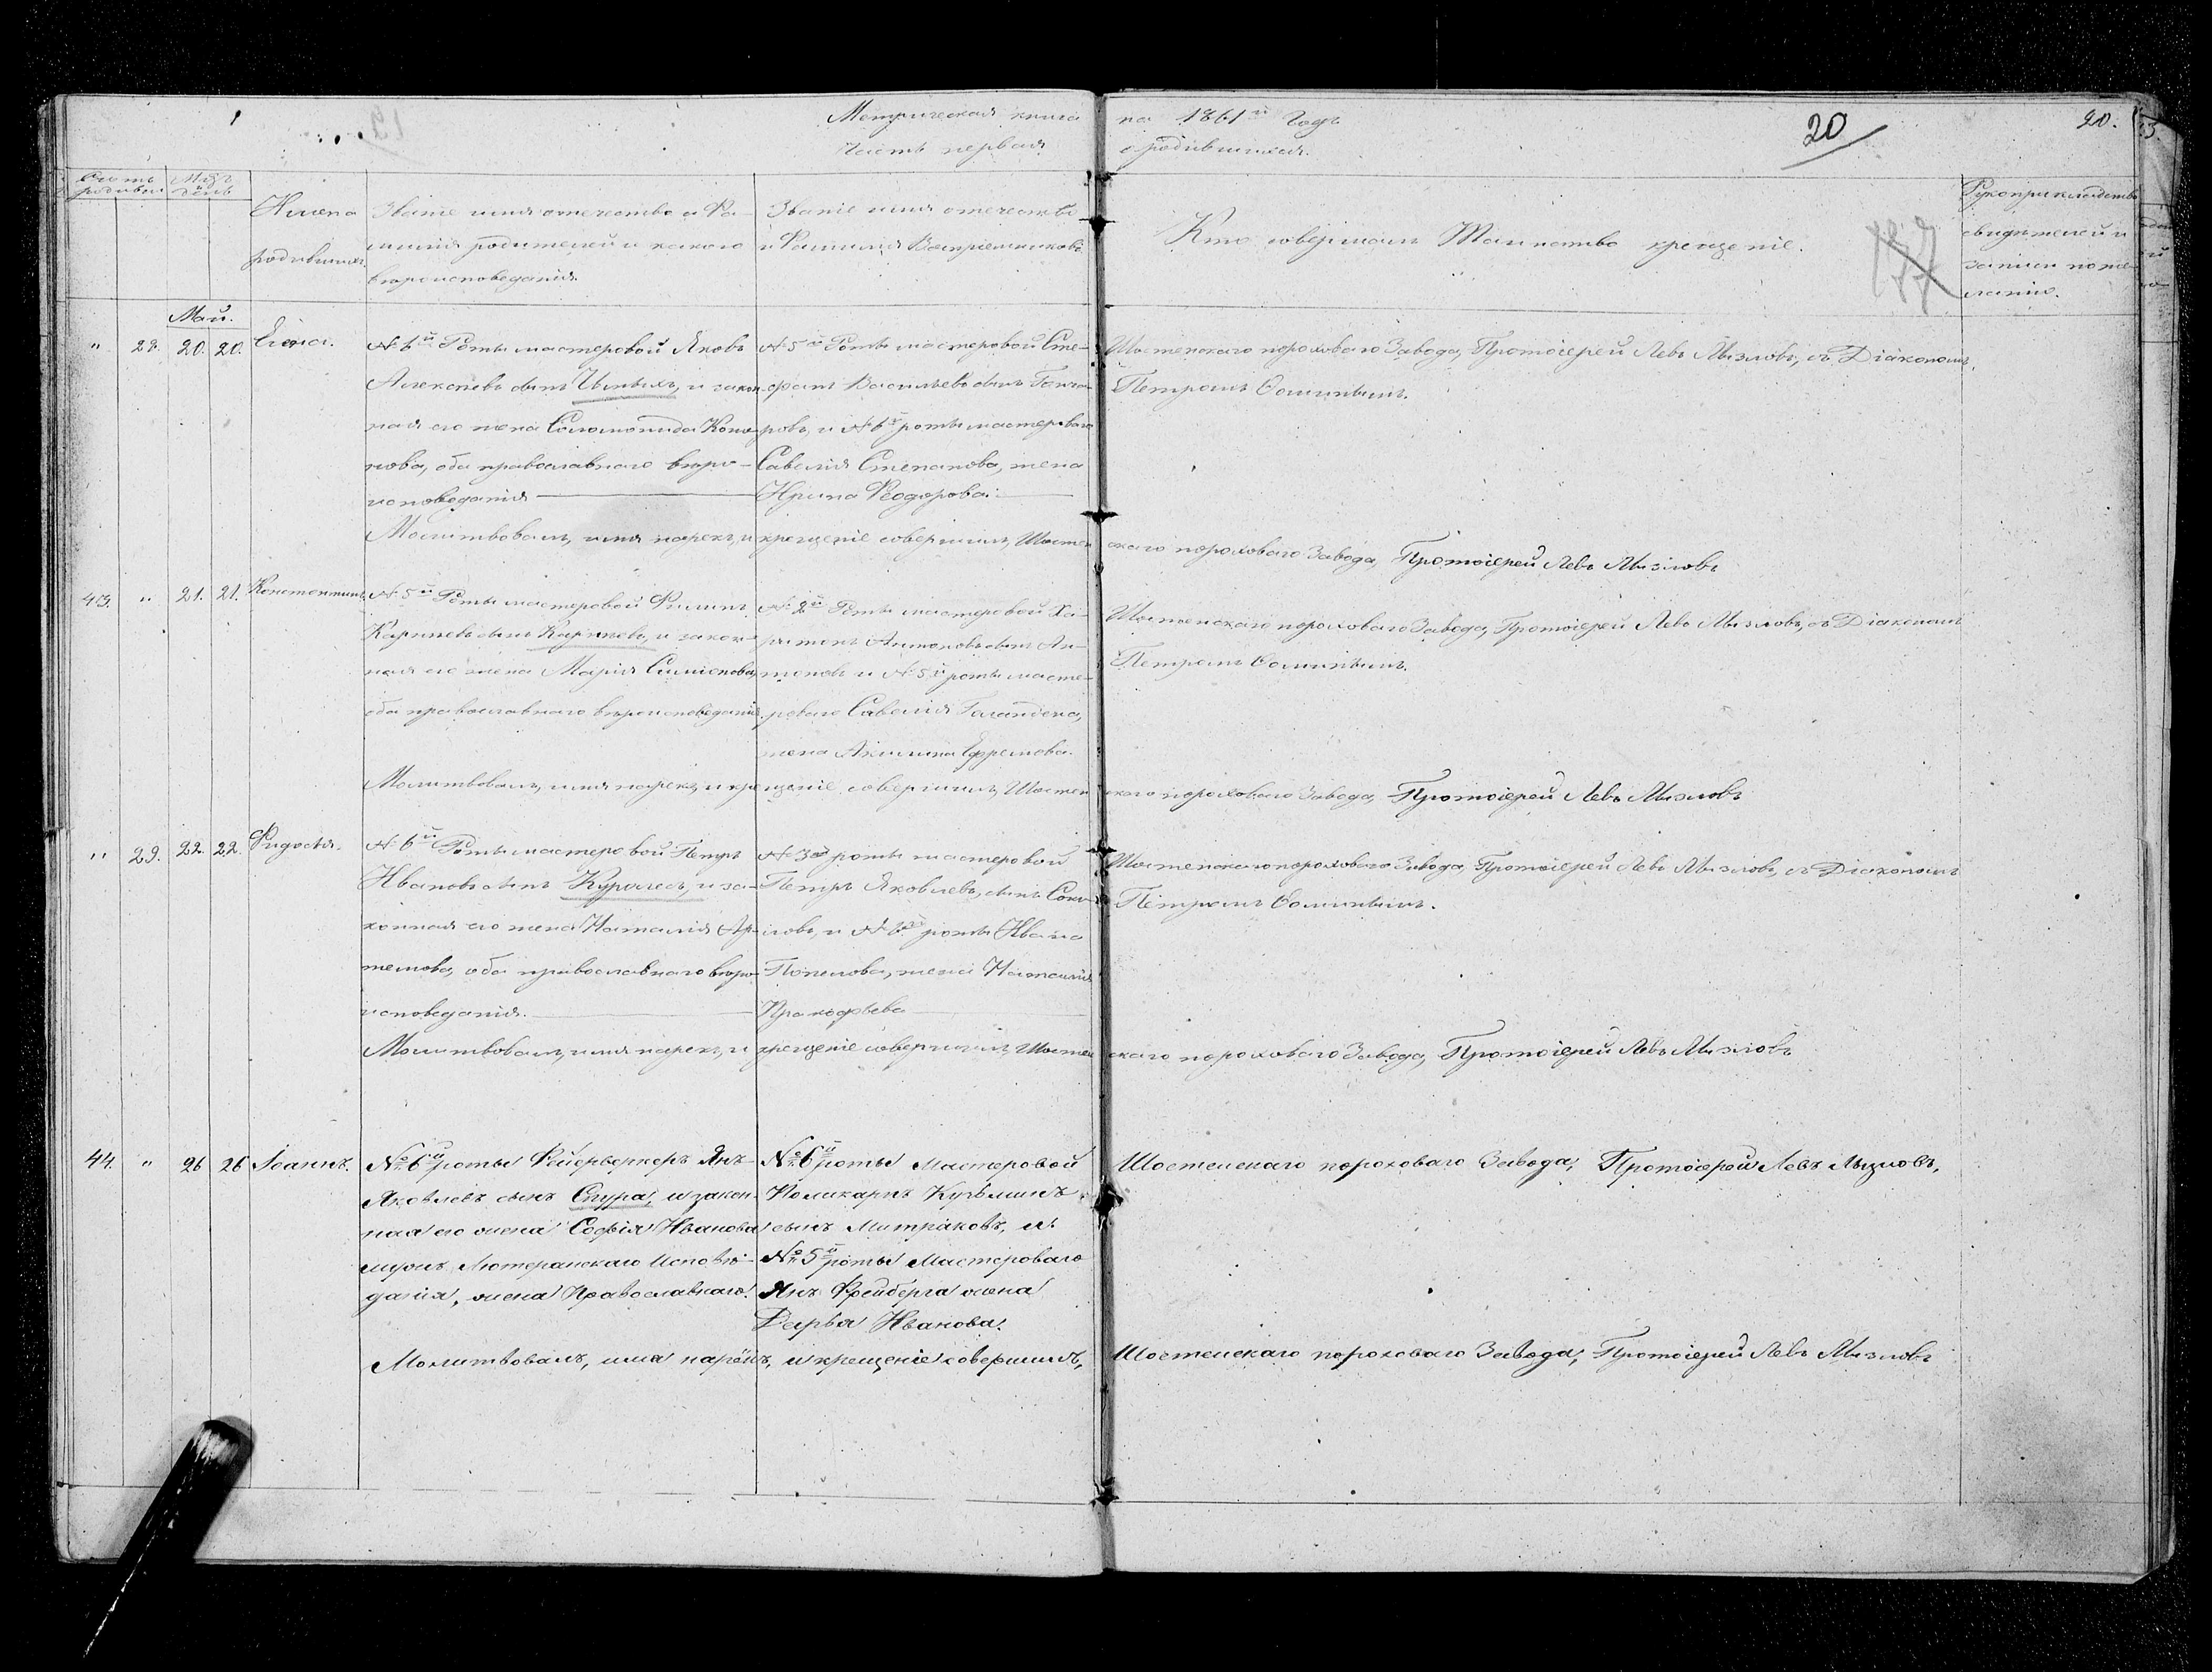 Метрическая книга на 1861й Годъ
Часть первая о родившихся.
20
20.
Счетъ родивш.
Мѣсяцъ день
Имена родившихъ.
Званіе имя отечество и Фамилія родителей и какого вѣроисповеданія.
Званіе имя отечество и Фамилія Воспріемниковъ
Кто совершалъ Таинство крещеніе.
Рукоприкладство свидѣтелей и записи по желанію.
Май.
" 28. 20. 20. Елена.
№ 6й Роты мастеровой Яковъ
Алексѣевъ сынъ и закон-
ная его жена Соломонида Коно-
нова, оба православнаго вѣро-
исповеданія
№ 5й Роты мастеровой Сте-
фанъ Васильевъ сынъ Гонча-
ровъ, и № 6й роты мастероваго
Савелія Степанова, жена
Ирина Феодорова.
Шостенскаго пороховаго Завода, Протоіерей Левъ Мызловъ, съ Діакономъ
Петромъ Ѳоминымъ.
Молитвовалъ, имя нарекъ, и крещеніе совершилъ, Шостенскаго пороховаго Завода, Протоіерей Левъ Мызловъ
43. " 21. 21. Константинъ.
№ 5й Роты мастеровой Филипъ
Карпневъ сынъ Карпневъ, и закон-
ная его жена Марія Симіонова,
оба православнаго вѣроисповеданія.
№ 2й Роты мастеровой Ха-
ритонъ Антоновъ сынъ Ан-
тоновъ и № 5й роты масте-
роваго Савелія
жена Акилина Ефремова.
Шостенскаго пороховаго Завода, Протоіерей Левъ Мызловъ, съ Діакономъ
Петромъ Ѳоминымъ.
Молитвовалъ, имя нарекъ, и крещеніе совершилъ, Шостенскаго пороховаго Завода, Протоіерей Левъ Мызловъ
" 29. 22. 22. Фидосья.
№ 6й Роты мастеровой Петръ
Ивановъ сынъ Куралесъ, и за-
конная его жена Наталія Ар-
темова, оба православнаго вѣро-
исповеданія.
№ 3й роты мастеровой
Петръ Яковлевъ, сынъ Соко-
ловъ, и № роты Ивана
Попелова, жена Наталія
Прокофьева
Шостенскаго пороховаго Завода, Протоіерей Левъ Мызловъ, съ Діакономъ
Петромъ Ѳоминымъ.
Молитвовалъ, имя нарекъ, и крещеніе совершилъ, Шостенскаго пороховаго Завода, Протоіерей Левъ Мызловъ
44. " 26 26 Іоаннъ.
№ 6й роты Фейерверкеръ Янъ
Яковлевъ сынъ Спура, и закон-
ная его жена Софія Иванова
мужъ Лютеранскаго Исповѣ-
данія, жена Православнаго.
№ 6й роты Мастеровой
Поликарпъ Кузьминъ
сынъ Митраковъ, и
№ 5й роты Мастероваго
Янъ Фрейберга жена
Дарья Иванова.
Шостенскаго пороховаго Завода, Протоіерей Левъ Мызловъ,
Молитвовалъ, имя нарёкъ, и крещеніе совершилъ, Шостенскаго пороховаго Завода, Протоіерей Левъ Мызловъ